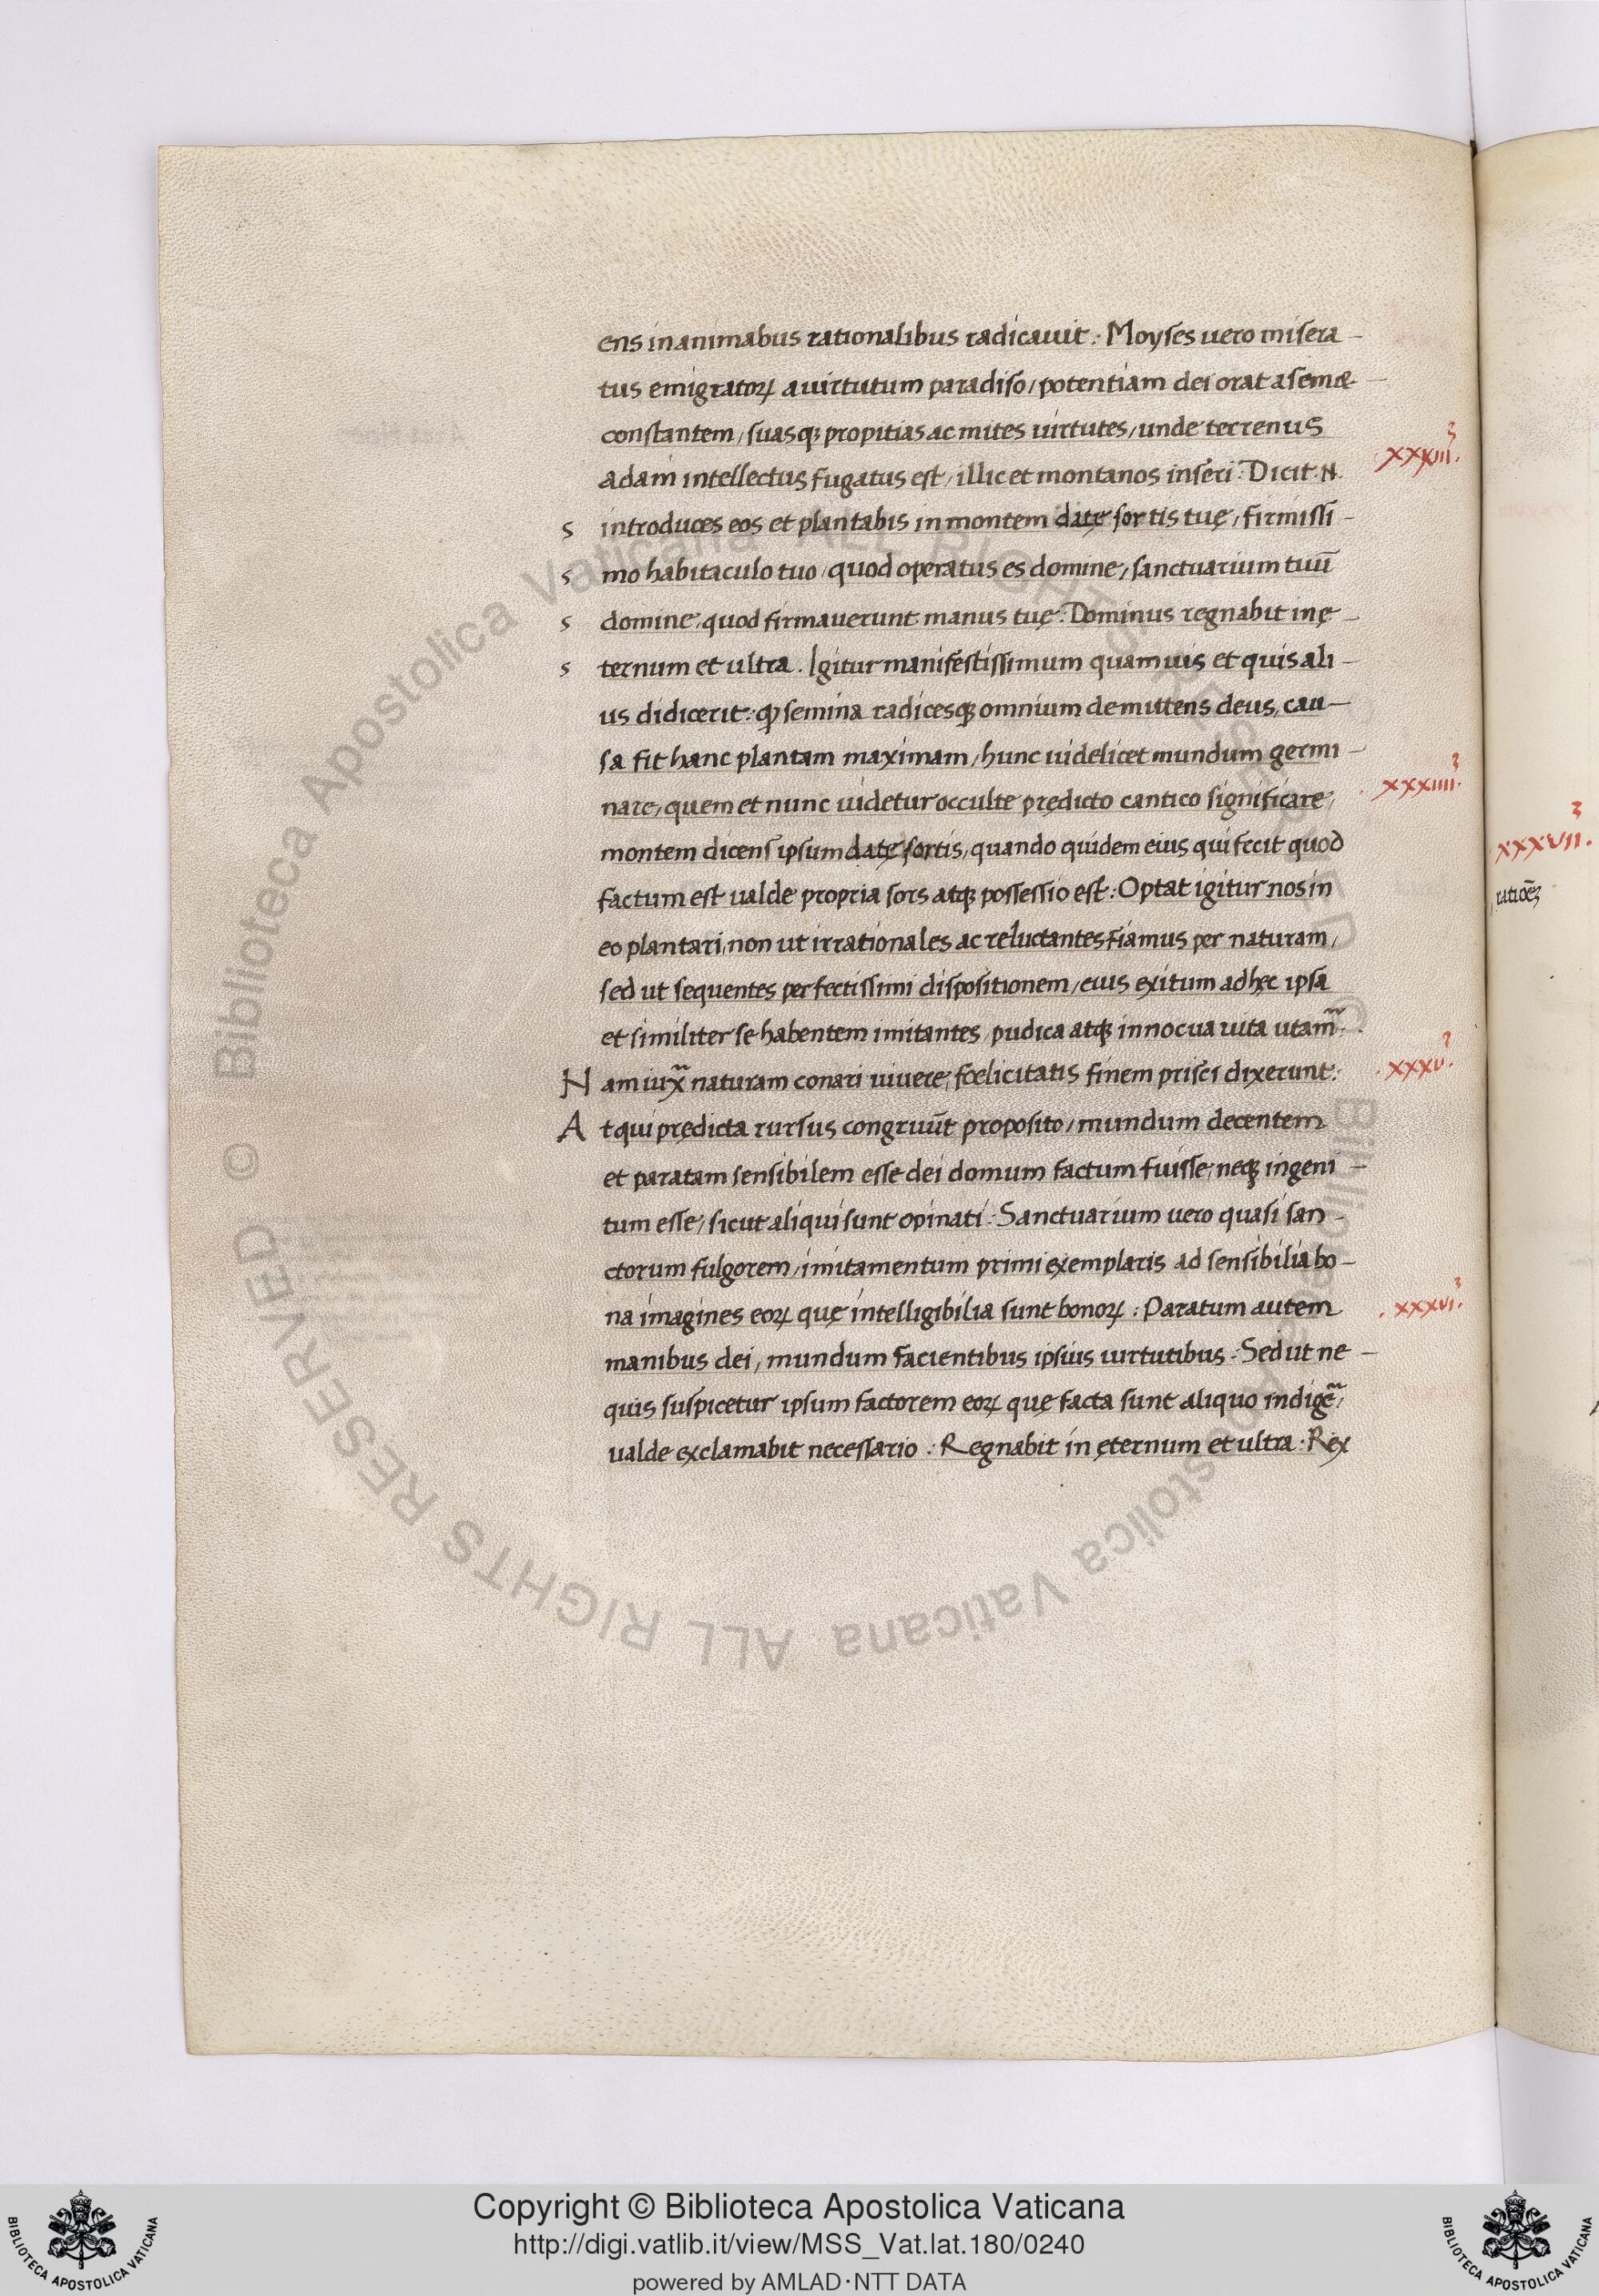 ens in animabus rationalibus radicauit : Moyses uero misera-
tus emigratoꝝ a uirtutum paradiso / potentiam dei orat a semæ-
constantem / suasqꝫ propitias ac mites uirtutes / unde terrenus
adam intellectus fugatus est / illic et montanos inseri : Dicit .N.
xxxiii.
s introduces eos et plantabis in montem datę sortis tuę / firmissi-
s mo habitaculo tuo / quod operatus es domine / sanctuarium tuū
s domine / quod firmauerunt manus tuę : Dominus regnabit in ę-
s ternum et ultra . Igitur manifestissimum quamuis et quis ali-
us didicerit : ꝙ semina radicesqꝫ omnium demittens deus, cau-
sa fit hanc plantam maximam / hunc uidelicet mundum germi-
nare / quem et nunc uidetur occulte prędicto cantico significare /
. xxxiiii.
montem dicens ipsum datę sortis / quando quidem eius qui fecit quod
factum est ualde propria sors atqꝫ possessio est : Optat igitur nos in
eo plantari / non ut irrationales ac reluctantes fiamus per naturam /
sed ut sequentes perfectissimi dispositionem / eius exitum ad hęc ipsa
et similiter se habentem imitantes / pudica atqꝫ innocua uita utam̃ .
Nam iux̃ naturam conari uiuere / fœlicitatis finem prisci dixerunt :
. xxxv.
Atqui prędicta rursus congruūt proposito / mundum decentem
et paratam sensibilem esse dei domum factum fuisse / neqꝫ ingeni-
tum esse / sicut aliqui sunt opinati : Sanctuarium uero quasi san-
ctorum fulgorem / imitamentum primi exemplaris ad sensibilia bo-
na imagines eoꝝ quę intelligibilia sunt bonoꝝ : Paratum autem
. xxxvi.
manibus dei / mundum facientibus ipsius uirtutibus . Sed ut ne-
quis suspicetur ipsum factorem eoꝝ quę facta sunt aliquo indigẽ /
ualde exclamabit necessario : Regnabit in ęternum et ultra : Rex
xxxvii.
© Biblioteca Apostolica Vaticana ALL RIGHTS RESERVED © Biblioteca Apostolica Vaticana ALL RIGHTS RESERVED
Copyright © Biblioteca Apostolica Vaticana
http://digi.vatlib.it/view/MSS_Vat.lat.180/0240
powered by AMLAD·NTT DATA
BIBLIOTECA APOSTOLICA VATICANA
BIBLIOTECA APOSTOLICA VATICANA